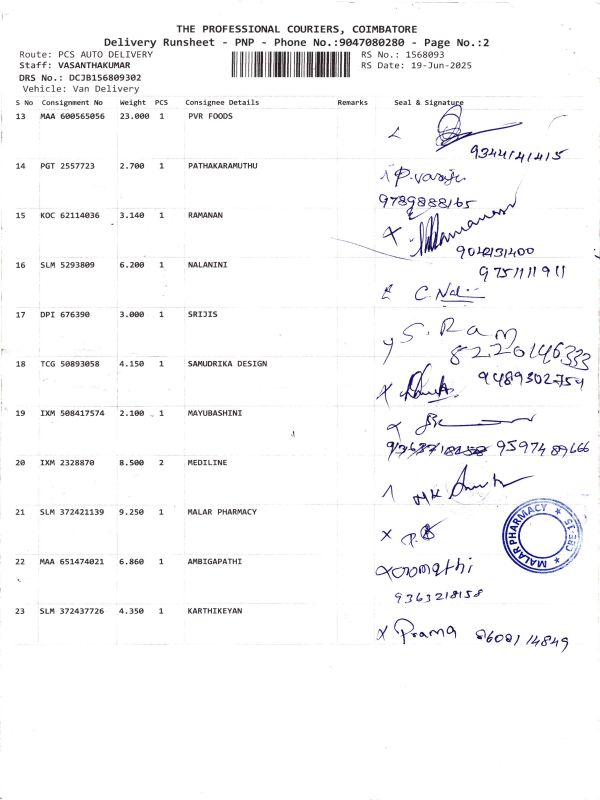 THE PROFESSIONAL COURIERS, COIMBATORE
Delivery Runsheet - PNP - Phone No.:9047080280 - Page No.:2
Route: PCS AUTO DELIVERY RS No.: 1568093
Staff: VASANTHAKUMAR RS Date: 19-Jun-2025
DRS No.: DCJB156809302
Vehicle: Van Delivery
S No Consignment No Weight PCS Consignee Details Remarks Seal & Signature
13 MAA 600565056 23.000 1 PVR FOODS
9344141415
14 PGT 2557723 2.700 1 PATHAKARAMUTHU
9789888165
15 KOC 62114036 3.140 1 RAMANAN
9042131400
16 SLM 5293809 6.200 1 NALANINI 9751111911
C. Nal
17 DPI 676390 3.000 1 SRIJIS
S. Ram
8220146333
18 TCG 50893058 4.150 1 SAMUDRIKA DESIGN
9489302754
19 IXM 508417574 2.100 1 MAYUBASHINI
9597489666
20 IXM 2328870 8.500 2 MEDILINE
21 SLM 372421139 9.250 1 MALAR PHARMACY
MALAR PHARMACY * CBE-35 *
22 MAA 651474021 6.860 1 AMBIGAPATHI
Gomathi
9363218158
23 SLM 372437726 4.350 1 KARTHIKEYAN
X Prama 8608114849